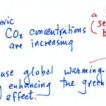 eric
CO₂ concentrations
are increasing
a
(se
b
use global warming
of enhancing the gree
effect.